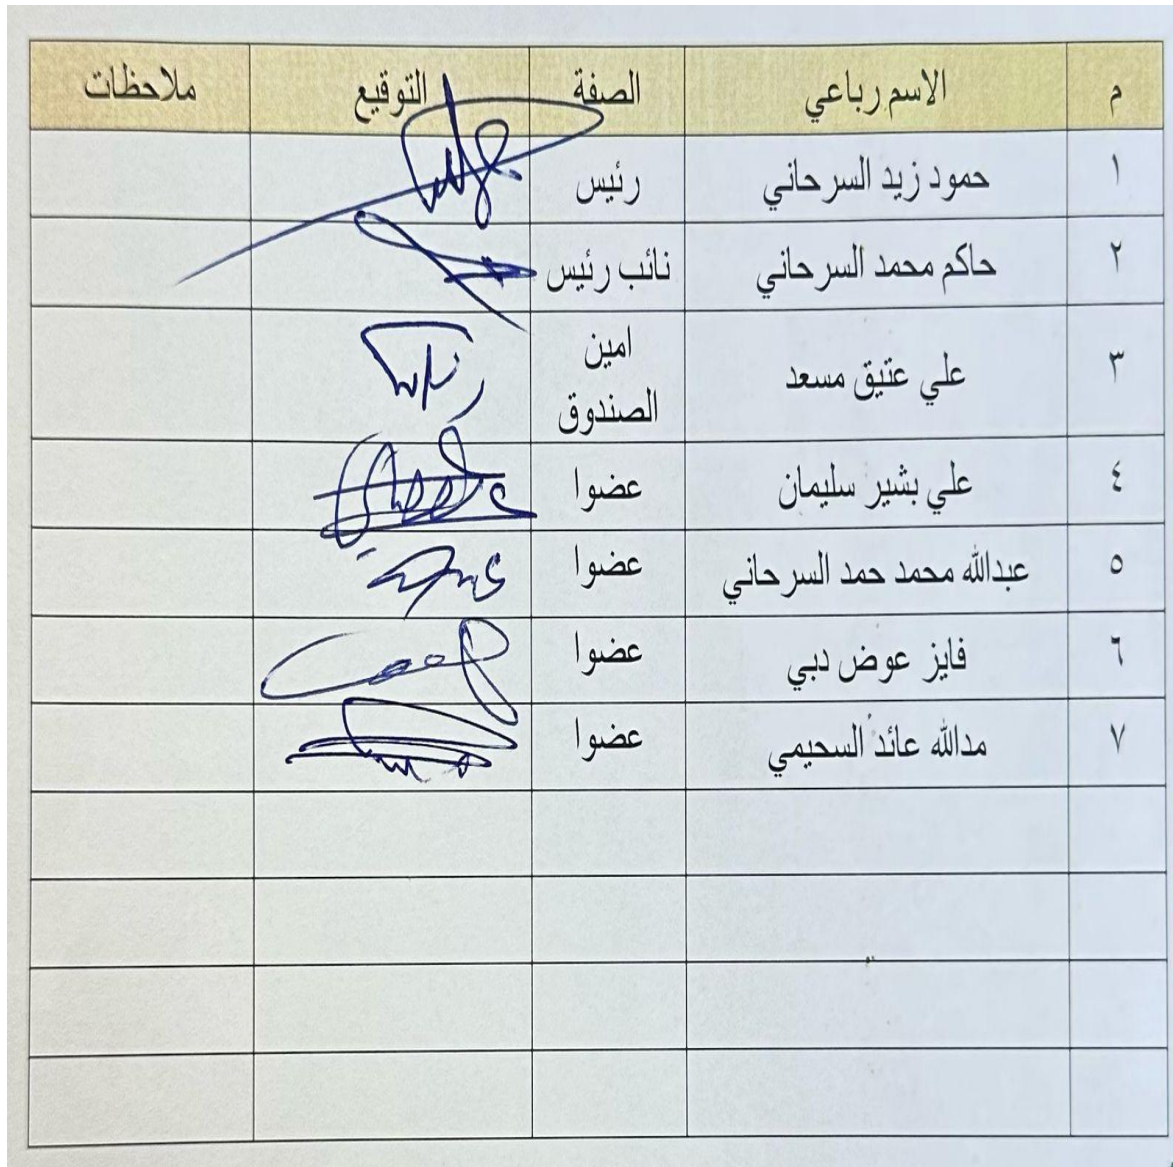 م الاسم رباعي الصفة التوقيع ملاحظات
١ حمود زيد السرحاني رئيس
٢ حاكم محمد السرحاني نائب رئيس
٣ علي عتيق مسعد امين
الصندوق
٤ علي بشير سليمان عضوا
٥ عبدالله محمد حمد السرحاني عضوا
٦ فايز عوض دبي عضوا
٧ مدالله عائد السحيمي عضوا